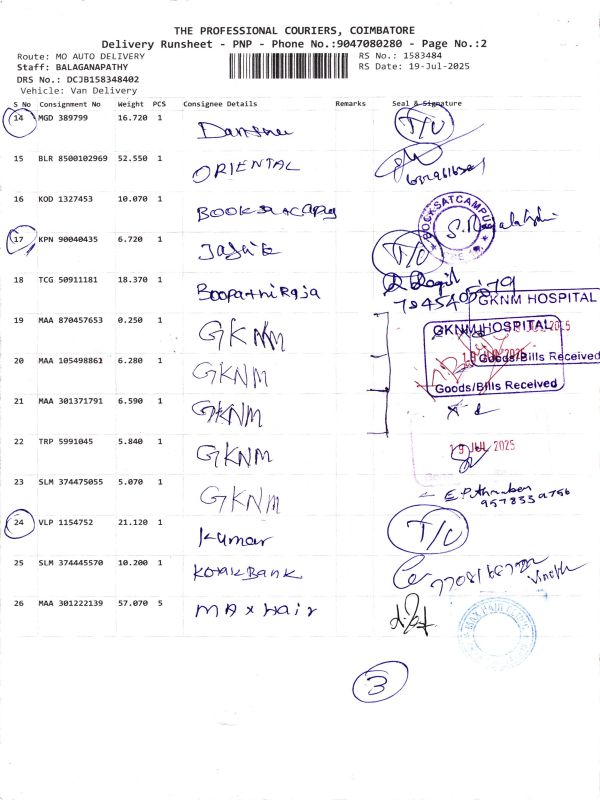 THE PROFESSIONAL COURIERS, COIMBATORE
Delivery Runsheet - PNP - Phone No.:9047080280 - Page No.:2
Route: MO AUTO DELIVERY
RS No.: 1583484
Staff: BALAGANAPATHY
RS Date: 19-Jul-2025
DRS No.: DCJB158348402
Vehicle: Van Delivery
S No Consignment No Weight PCS Consignee Details Remarks Seal & Signature
14 MGD 389799 16.720 1 T/U
15 BLR 8500102969 52.550 1 ORIENTAL
16 KOD 1327453 10.070 1
17 KPN 90040435 6.720 1 T/U
18 TCG 50911181 18.370 1 Boopathi Raja
GKNM HOSPITAL
19 MAA 870457653 0.250 1 GKNM
GKNM HOSPITAL
Goods/Bills Received
20 MAA 105498861 6.280 1 GKNM
Goods/Bills Received
21 MAA 301371791 6.590 1 GKNM
22 TRP 5991045 5.840 1 GKNM
19 JUL 2025
23 SLM 374475055 5.070 1 GKNM
9578339756
24 VLP 1154752 21.120 1 Kumar T/U
25 SLM 374445570 10.200 1 Kotak Bank
26 MAA 301222139 57.070 5 MAX Hair
3